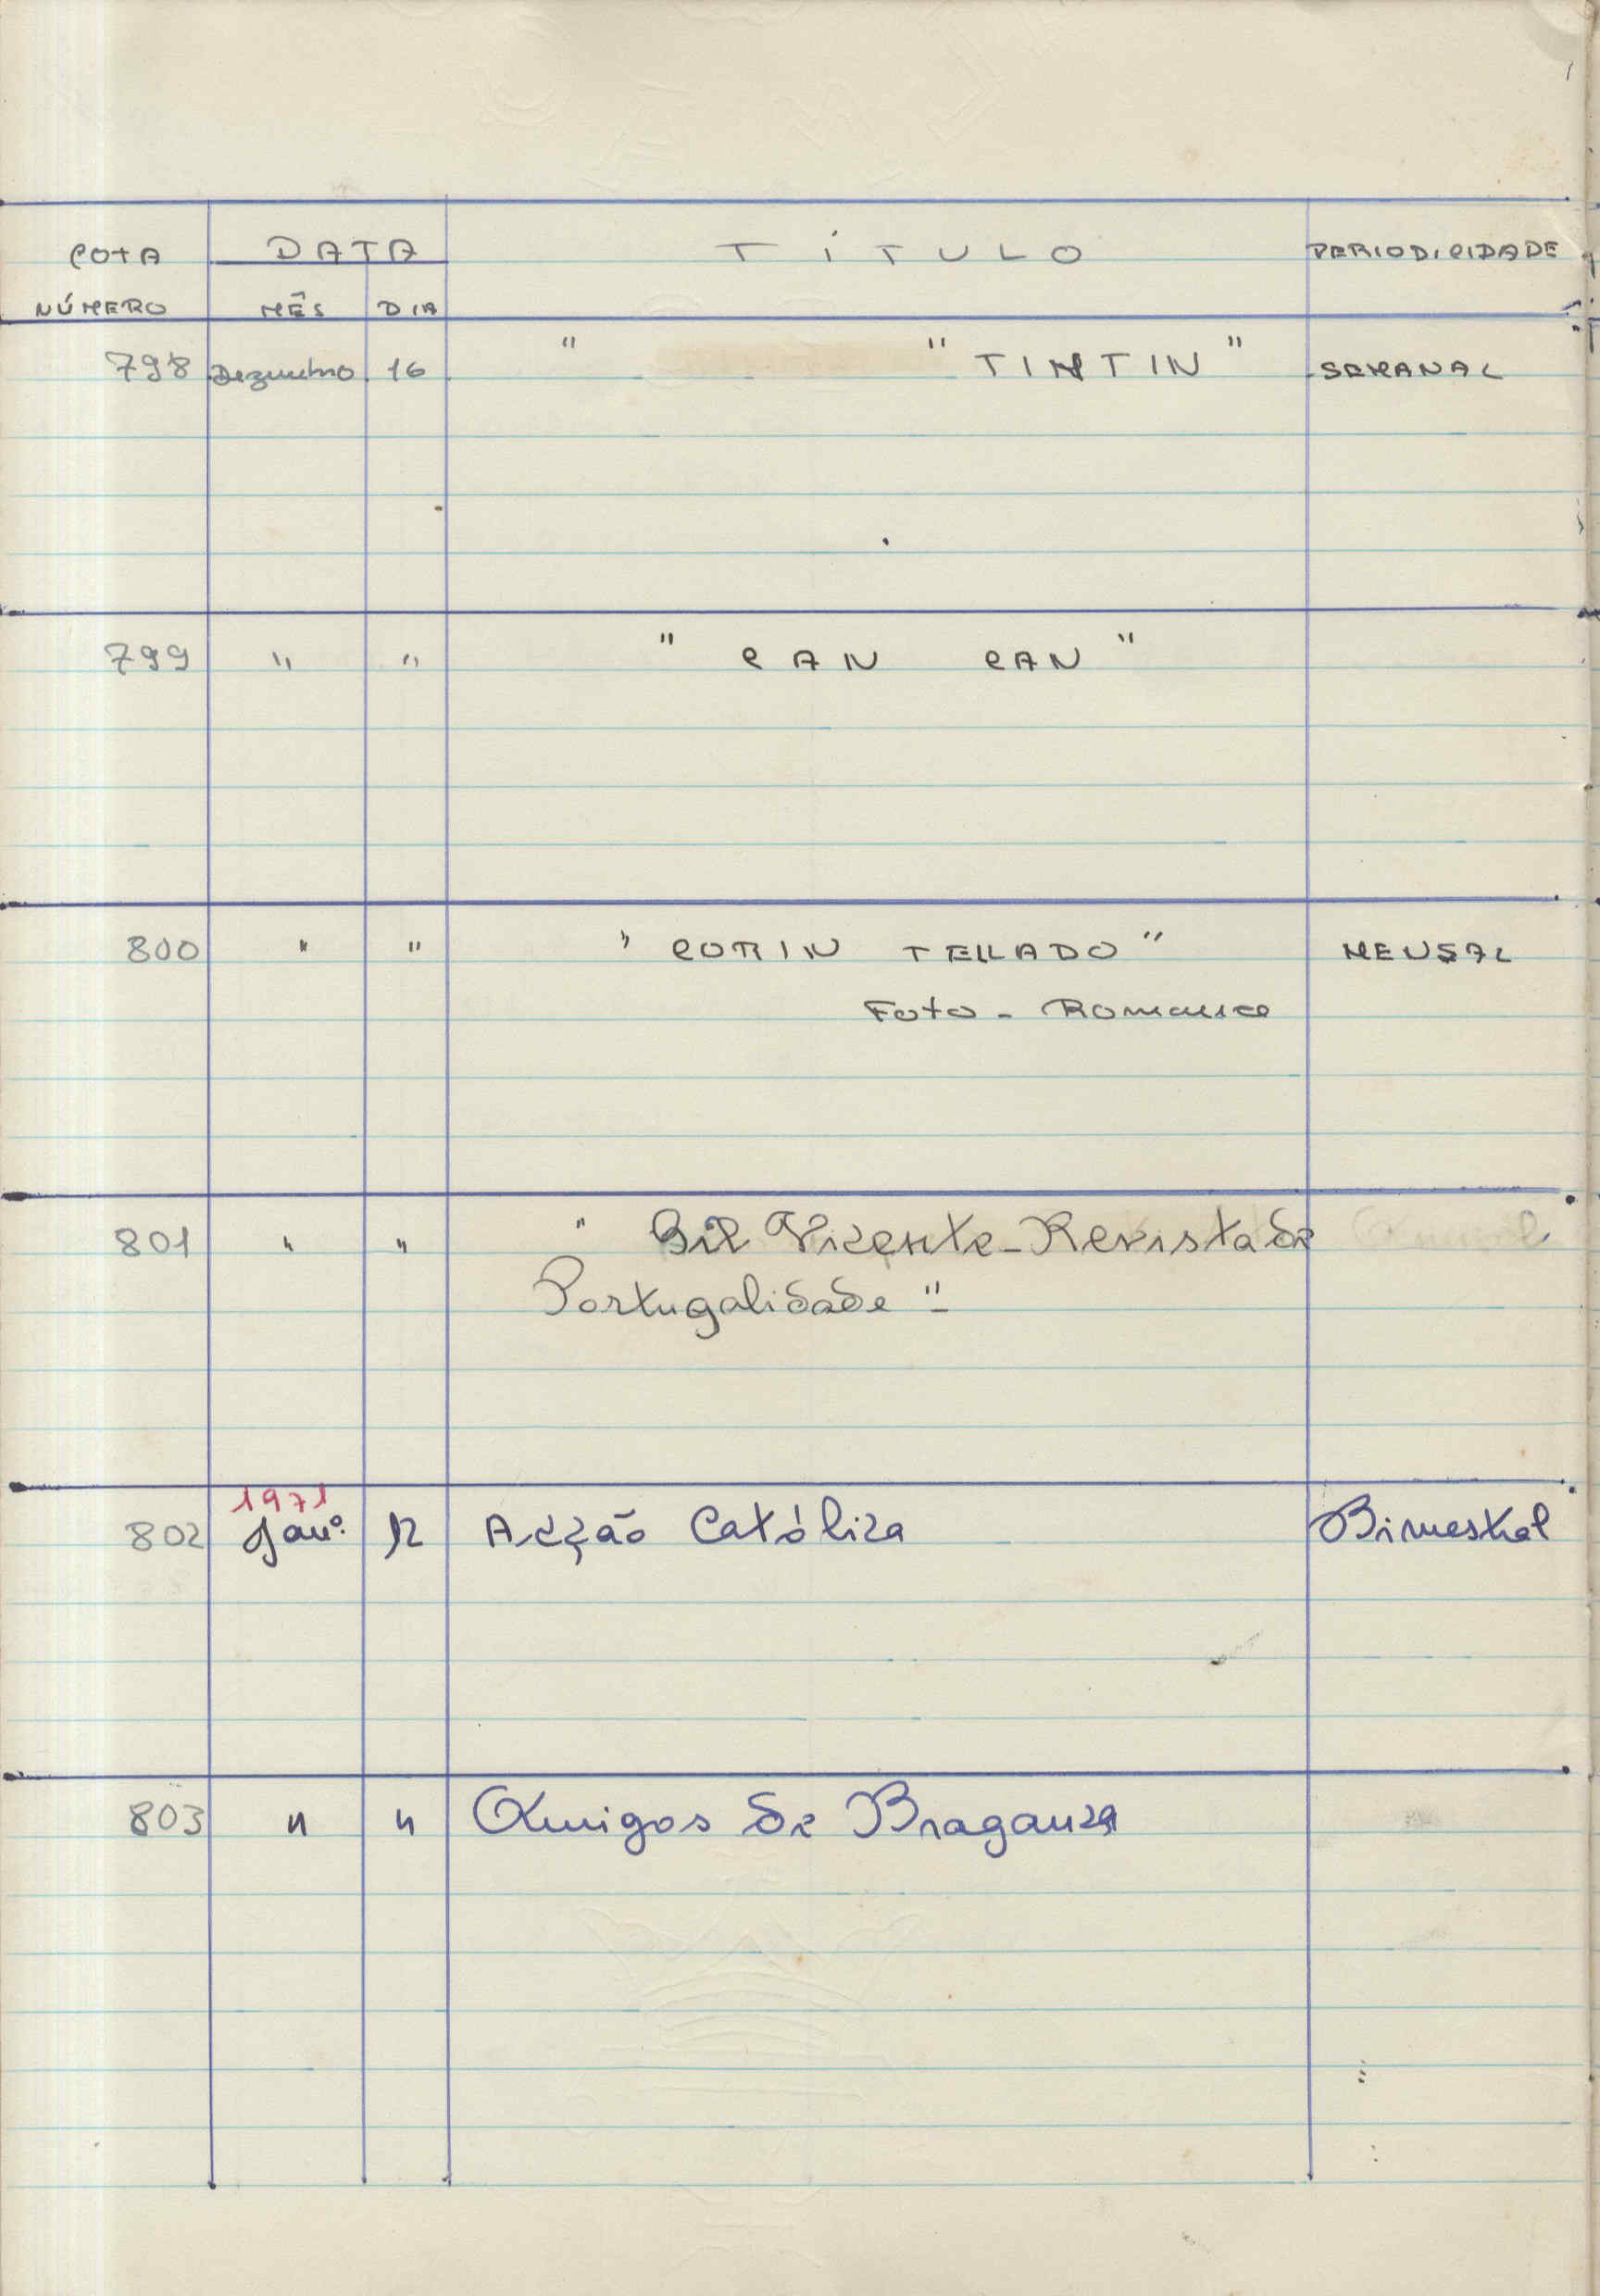 COTA DATA TÍTULO PERIODICIDADE
NÚMERO MÊS DIA
798 Dezembro 16 " " TINTIN " SEMANAL
799 " " " CAN CAN "
800 " " " CORIN TELLADO " MENSAL
Foto - Romance
801 " " " Gil Vicente - Revista de
Portugalidade "
1971
802 Janº. 12 Acção Católica Bimestral
803 " " Amigos de Bragança